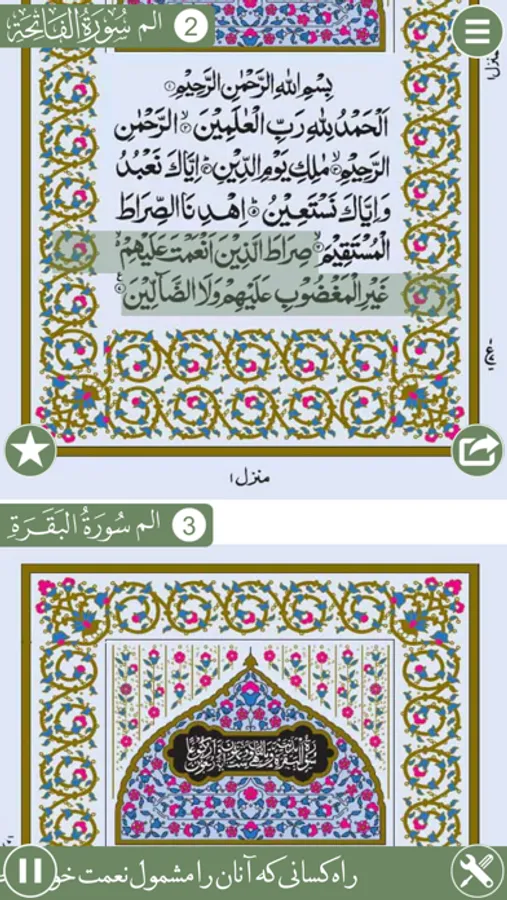 الم سُورَةُ الفَاتِحَةِ 2
بِسْمِ اللّٰهِ الرَّحْمٰنِ الرَّحِيْمِ
اَلْحَمْدُ لِلّٰهِ رَبِّ الْعٰلَمِيْنَ ۙ الرَّحْمٰنِ
الرَّحِيْمِ ۙ مٰلِكِ يَوْمِ الدِّيْنِ ؕ اِيَّاكَ نَعْبُدُ
وَاِيَّاكَ نَسْتَعِيْنُ ؕ اِهْدِنَا الصِّرَاطَ
الْمُسْتَقِيْمَ ۙ صِرَاطَ الَّذِيْنَ اَنْعَمْتَ عَلَيْهِمْ
غَيْرِ الْمَغْضُوْبِ عَلَيْهِمْ وَلَا الضَّآلِّيْنَ
منزل ۱
منزل ۱
الم سُورَةُ البَقَرَةِ 3
راه کسانی که آنان را مشمول نعمت خو